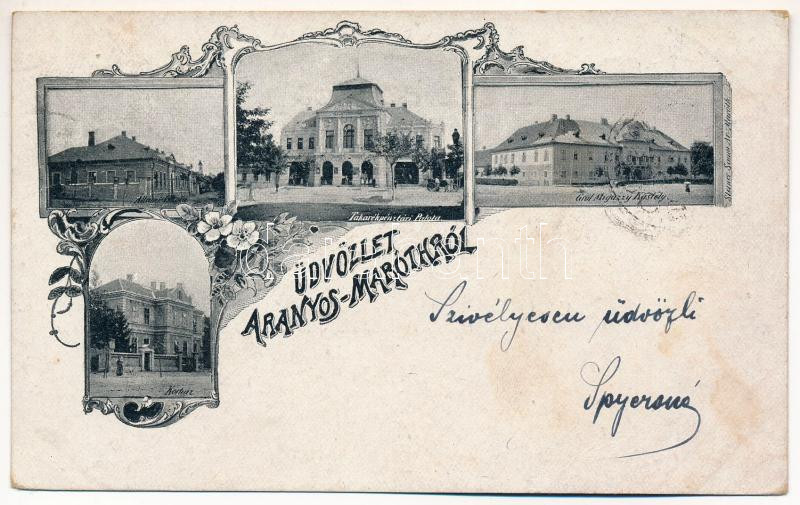 Takarékpénztári Palota
Gróf Migazzy Kastély.
ÜDVÖZLET
ARANYOS-MARÓTHRÓL
Szivélyesen üdvözli
Spyersné
Korház